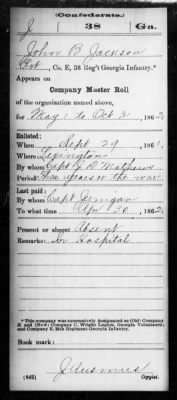 (Confederate.)
J 38 Ga.
John B Jackson
Pvt, Co. E, 38 Reg't Georgia Infantry.*
Appears on
Company Muster Roll
of the organization named above,
for May 1 to Oct 3, 1862.
Enlisted:
When Sept 29, 1861.
Where Lexington
By whom Capt J. D. Mathews
Period Three years or the war
Last paid:
By whom Capt Jernigan
To what time Apr 30, 1862.
Present or absent Absent
Remarks: In Hospital
*This company was successively designated as (Old) Company
E and (New) Company C, Wright Legion, Georgia Volunteers;
and Company E, 38th Regiment Georgia Infantry.
Book mark:
(642) Copyist.